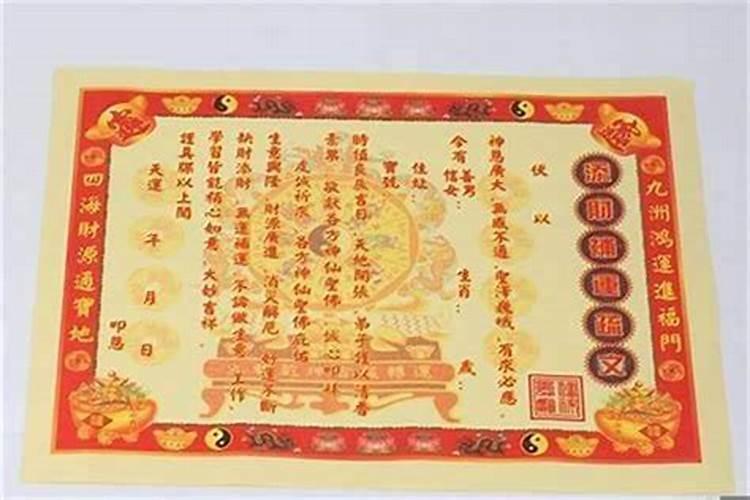 九洲鴻運進福門
添財補運疏文
伏以
神恩廣大 無感不通 聖澤巍峨 有求必應
今有善男信女：生肖：歲：
住址：
寶號：
時值良辰吉日 天地開張 弟子以清香
素果 敬獻各方神仙聖佛 誠心叩拜
虔誠祈求 各方神仙聖佛庇佑
生意興隆 財源廣進 消災解厄 好運不斷
缺財添財 無運補運 不論做生意、工作、
學習皆能稱心如意 大妙吉祥
謹具疏以上聞
天運 年 月 日
叩懇
四海財源通寶地